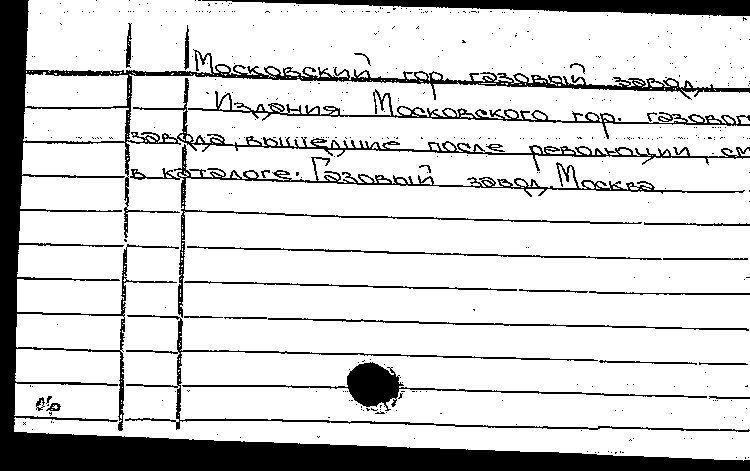 Московский гор. газовый завод.
Издания Московского гор. газового
завода, вышедшие после революции, см
в каталоге: Газовый завод. Москва.